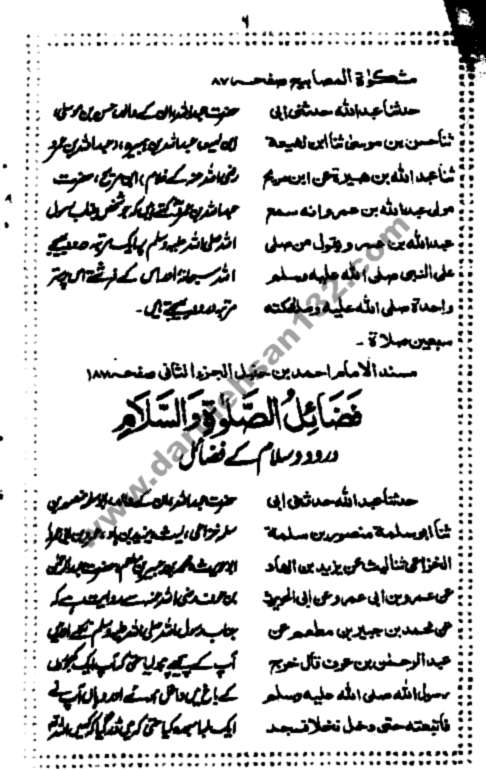 ۶
مشکوٰۃ المصابیح صفحہ ۸۷
حدثنا عبد الله حدثنی ابی
ثنا حسن بن موسیٰ ثنا ابن لهیعة
ثنا عبد الله بن هبیرة عن ابن مریح
مولی عبد الله بن عمرو انه سمع
عبد الله بن عمرو یقول من صلی
علی النبی صلی الله علیه وسلم
واحدة صلی الله علیه وملئکته
سبعین صلاة -
حضرت عبد اللہ، ان کے والد، حسن بن موسیٰ،
ابن لہیعہ، عبد اللہ بن ہبیرہ، عبد اللہ بن عمرو
رضی اللہ عنہ کے غلام، ابن مریح، حضرت
عبد اللہ بن عمرو کہتے ہیں کہ جو شخص جناب رسول
اللہ صلی اللہ علیہ وسلم پر ایک مرتبہ درود بھیجے
اللہ سبحانہ اور اس کے فرشتے اس پر ستر
مرتبہ درود بھیجتے ہیں۔
مسند الامام احمد بن حنبل الجزء الثانی صفحہ ۱۸۷
فَضَائِلُ الصَّلٰوةِ وَالسَّلَامِ
درود و سلام کے فضائل
حدثنا عبد الله حدثنی ابی
ثنا ابو سلمة منصور بن سلمة
الخزاعی ثنا لیث عن یزید بن الهاد
عن عمرو بن ابی عمرو عن ابی الحویرث
عن محمد بن جبیر بن مطعم عن
عبد الرحمٰن بن عوف قال خرج
رسول الله صلی الله علیه وسلم
فاتبعته حتی دخل نخلا فسجد
حضرت عبد اللہ، ان کے والد، ابو سلمہ منصور بن
سلمہ خزاعی، لیث، یزید بن ہاد، عمرو بن ابی عمرو
ابو حویرث، محمد بن جبیر بن مطعم، حضرت عبد الرحمٰن
بن عوف رضی اللہ عنہ سے روایت ہے کہ
جناب رسول اللہ صلی اللہ علیہ وسلم نکلے اور میں
آپ کے پیچھے ہو لیا حتیٰ کہ آپ ایک کھجوروں
کے باغ میں داخل ہوئے اور وہاں آپ نے
ایک لمبا سجدہ کیا حتیٰ کہ میں ڈر گیا کہ کہیں اللہ تعالیٰ
www.darulehsan132.com